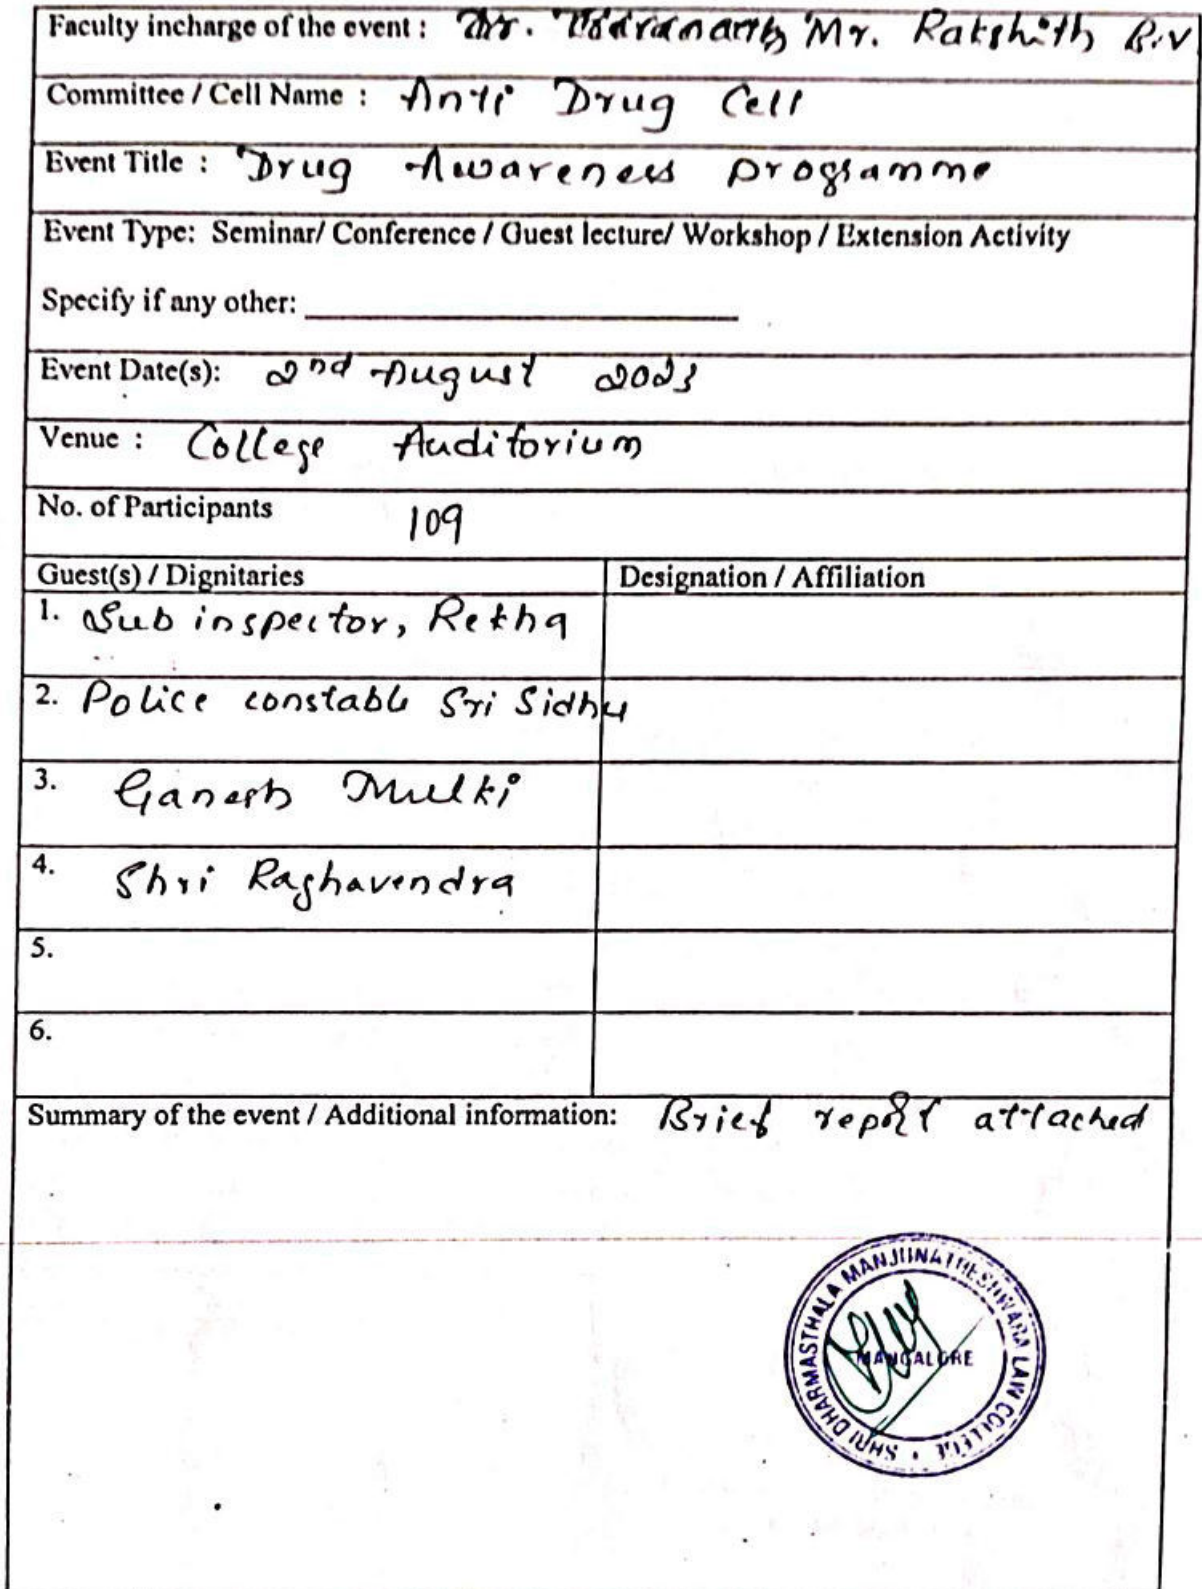 Faculty incharge of the event : Dr. Mr. Rakshith B.V
Committee / Cell Name : Anti Drug Cell
Event Title : Drug Awareness programme
Event Type: Seminar/ Conference / Guest lecture/ Workshop / Extension Activity
Specify if any other:
Event Date(s): 2nd August 2023
Venue : College Auditorium
No. of Participants 109
Guest(s) / Dignitaries Designation / Affiliation
1. Sub inspector, Rekha
2. Police constable Sri Sidhu
3. Ganesh Mulki
4. Shri Raghavendra
5.
6.
Summary of the event / Additional information: Brief report attached
SHRI DHARMASTHALA MANJUNATHESHWARA LAW COLLEGE
MANGALORE